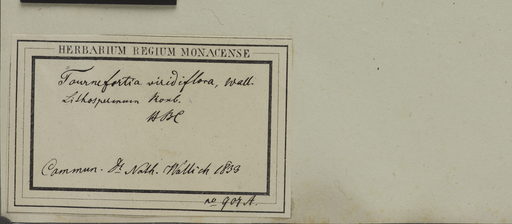 HERBARIUM REGIUM MONACENSE
Tournefortia viridiflora, Wall.
Lithospermum Roxb.
HBC
Commun. Dr Nath. Wallich 1833
no 907 A.